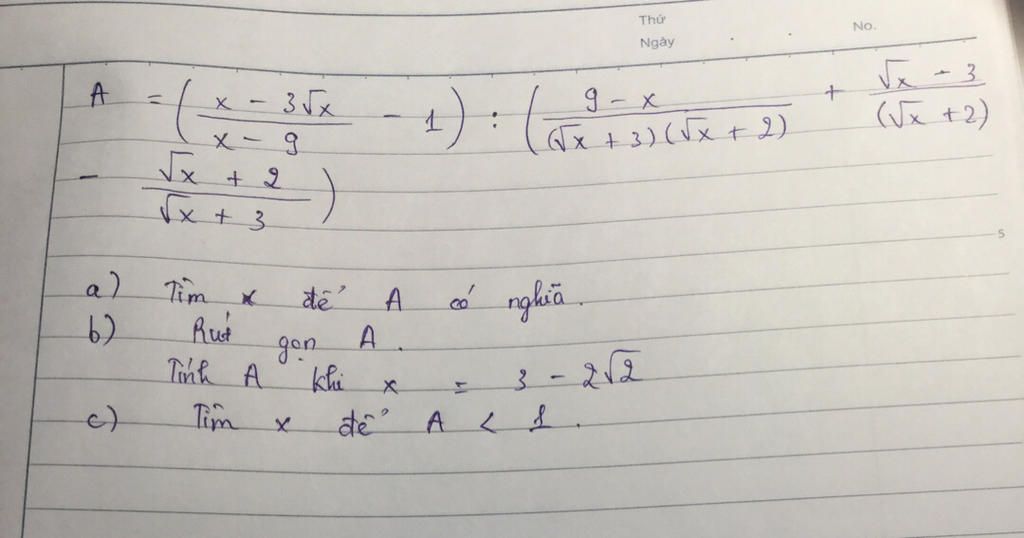 Thứ
Ngày . . No.
A = ( (x - 3√x)/(x - 9) - 1 ) : ( (9 - x)/((√x + 3)(√x + 2)) + (√x - 3)/((√x + 2))
- (√x + 2)/(√x + 3) )
5
a) Tìm x để A có nghĩã.
b) Rút gọn A.
Tính A khi x = 3 - 2√2
c) Tìm x để A < 1.